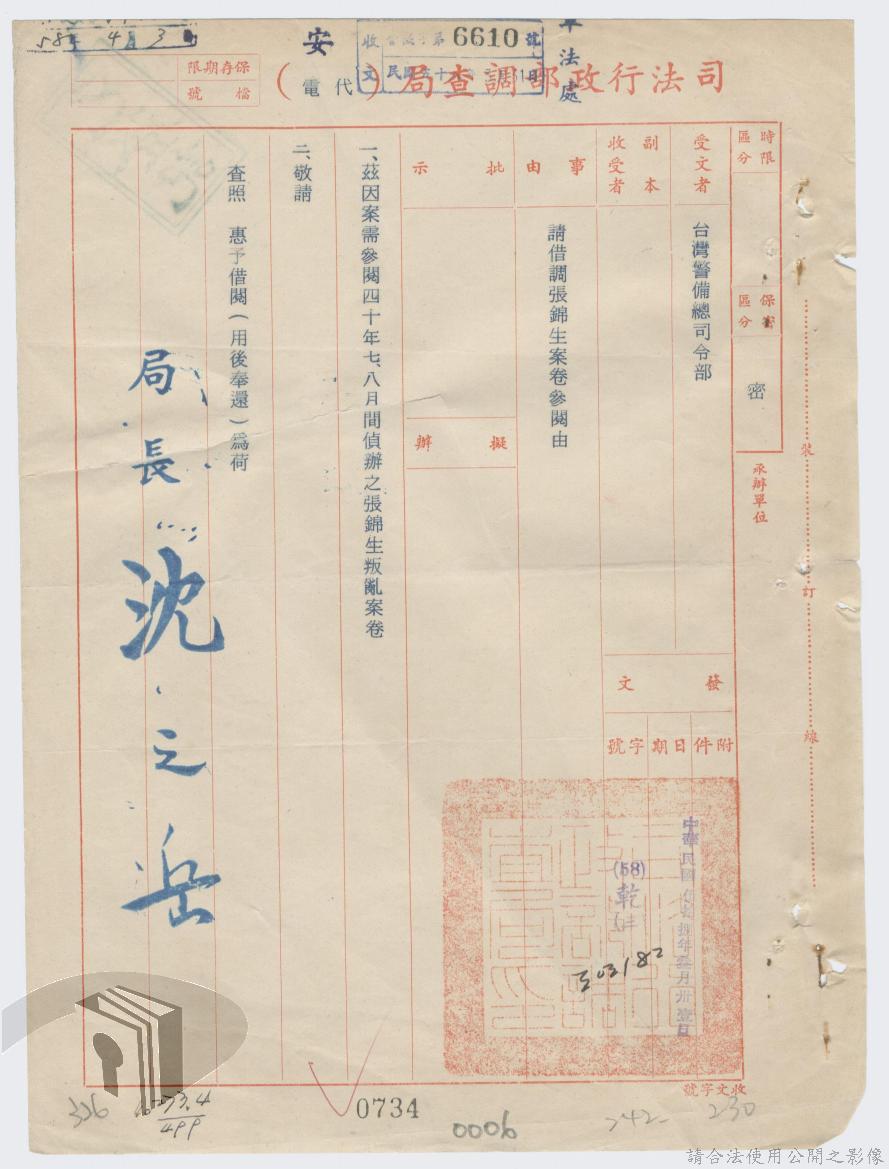 58年 4月 3
收文 第6610號
軍法處
安
司法行政部調查局（代電）
保存期限
檔號
時限區分
保密區分
密
承辦單位
受文者
台灣警備總司令部
副本收受者
事由
請借調張錦生案卷參閱由
批示
擬辦
發文
附件
日期
字號
中華民國伍拾捌年叁月卅壹日
(58)乾
303182
一、茲因案需參閱四十年七、八月間偵辦之張錦生叛亂案卷
二、敬請
查照　惠予借閱（用後奉還）為荷
局長 沈之岳
裝
訂
線
收文字號
326
273.4
499
0734
0006
242
230
請合法使用公開之影像